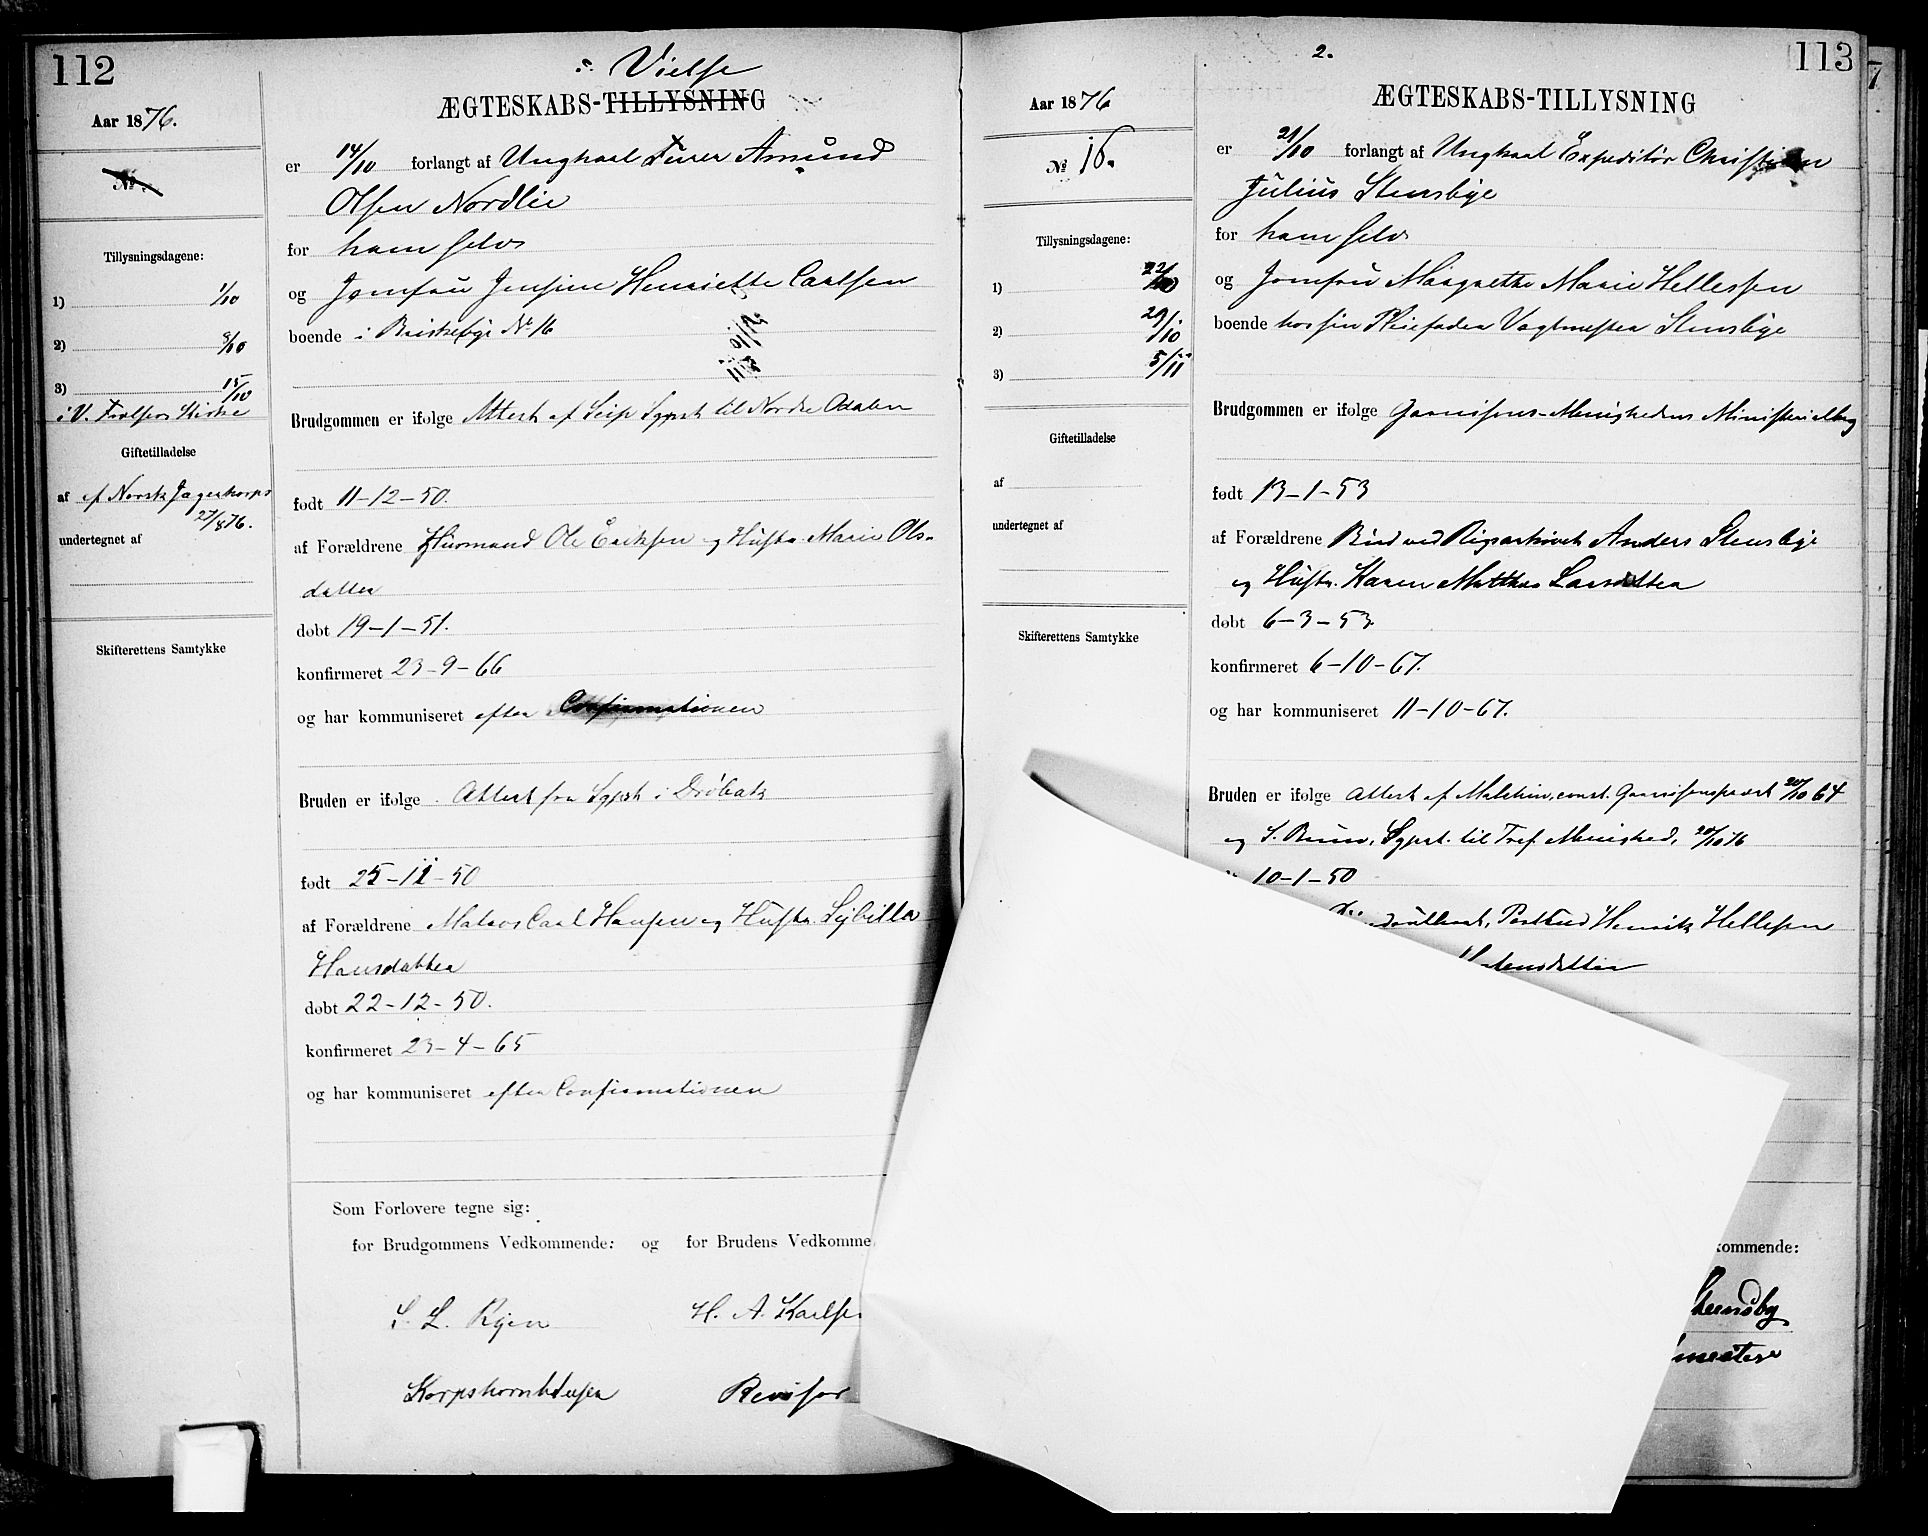 112
Vielse
ÆGTESKABS-TILLYSNING
Aar 1876.
№
er 14/10 forlangt af Ungkarl Furer Amund
Olsen Nordlie
for ham selv
og Jomfru Jensine Henriette Carlsen
boende i Briskebye № 16
Tillysningsdagene:
1) 1/10
2) 8/10
3) 15/10
i V. Kirke
Giftetilladelse
af af Norsk Jægerkorps
27/8 76.
undertegnet af
Skifterettens Samtykke
Brudgommen er ifølge Attest af Seip Sgprst til Nordre Odalen
født 11-12-50.
af Forældrene Husmand Ole Eriksen og Hustr. Marie Ols-
datter
døbt 19-1-51.
konfirmeret 23-9-66
og har kommuniseret efter Confirmationen
Bruden er ifølge Attest fra Sgprst i Drøbak
født 25-11-50
af Forældrene Matros Carl Hansen og Hustr. Sybilla
Hansdatter
døbt 22-12-50.
konfirmeret 23-4-65
og har kommuniseret efter Confirmationen
Som Forlovere tegne sig:
for Brudgommens Vedkommende: og for Brudens Vedkomme
S. L. Ryen H. A. Karlse
Revisor
2.
113
ÆGTESKABS-TILLYSNING
Aar 1876
№ 16.
er 21/10 forlangt af Ungkarl Expeditør Christian
Julius Stensbye
for ham selv
og Jomfru Margrethe Marie Hellesen
boende hos sin Pleiefader Vagtmester Stensbye
Tillysningsdagene:
1) 22/10
2) 29/10
3) 5/11
Giftetilladelse
af
undertegnet af
Skifterettens Samtykke
Brudgommen er ifølge Garnisons-Menighedens Ministerialbog
født 13-1-53
af Forældrene Bud ved Rigsarkivet Anders Stensbye
og Hustr. Karen Mathea Larsdatter
døbt 6-3-53
konfirmeret 6-10-67.
og har kommuniseret 11-10-67.
Bruden er ifølge Attest af const. Garnisonsprest 20/10 64
og S. Bruun, Sgprst. til Tref. Menighed, 20/10 76
10-1-50
Postbud Henrik Hellesen
kommende: